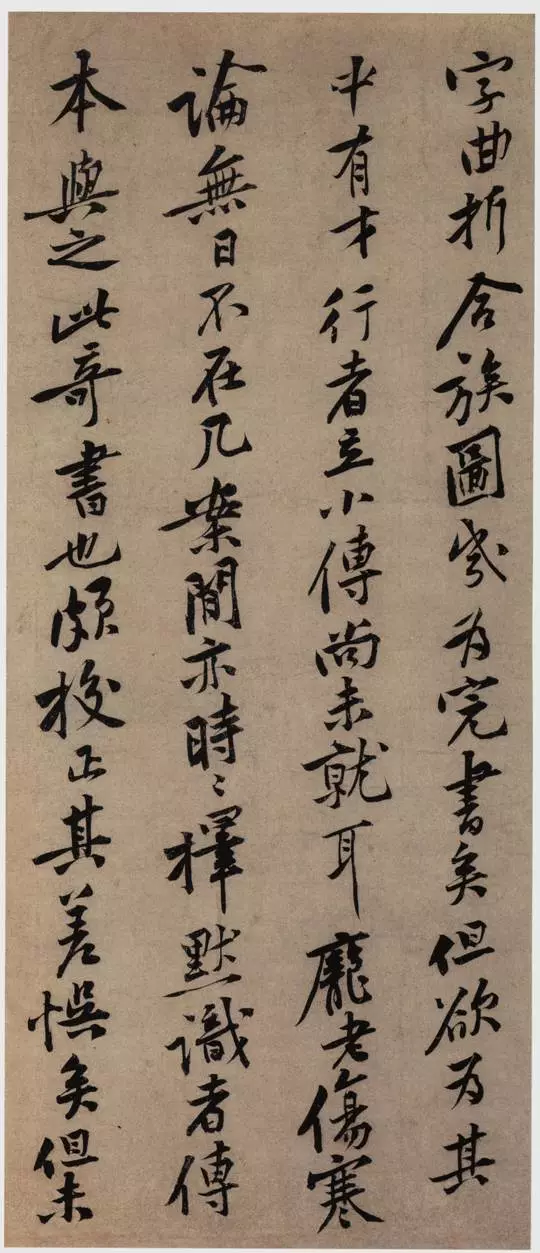 字曲折合族圖幾为完書矣但欲为其
中有才行者立小傳尚未就耳龐老傷寒
論無日不在几案間亦時〻擇默識者傳
本與之此奇書也頗校正其差悮矣但未